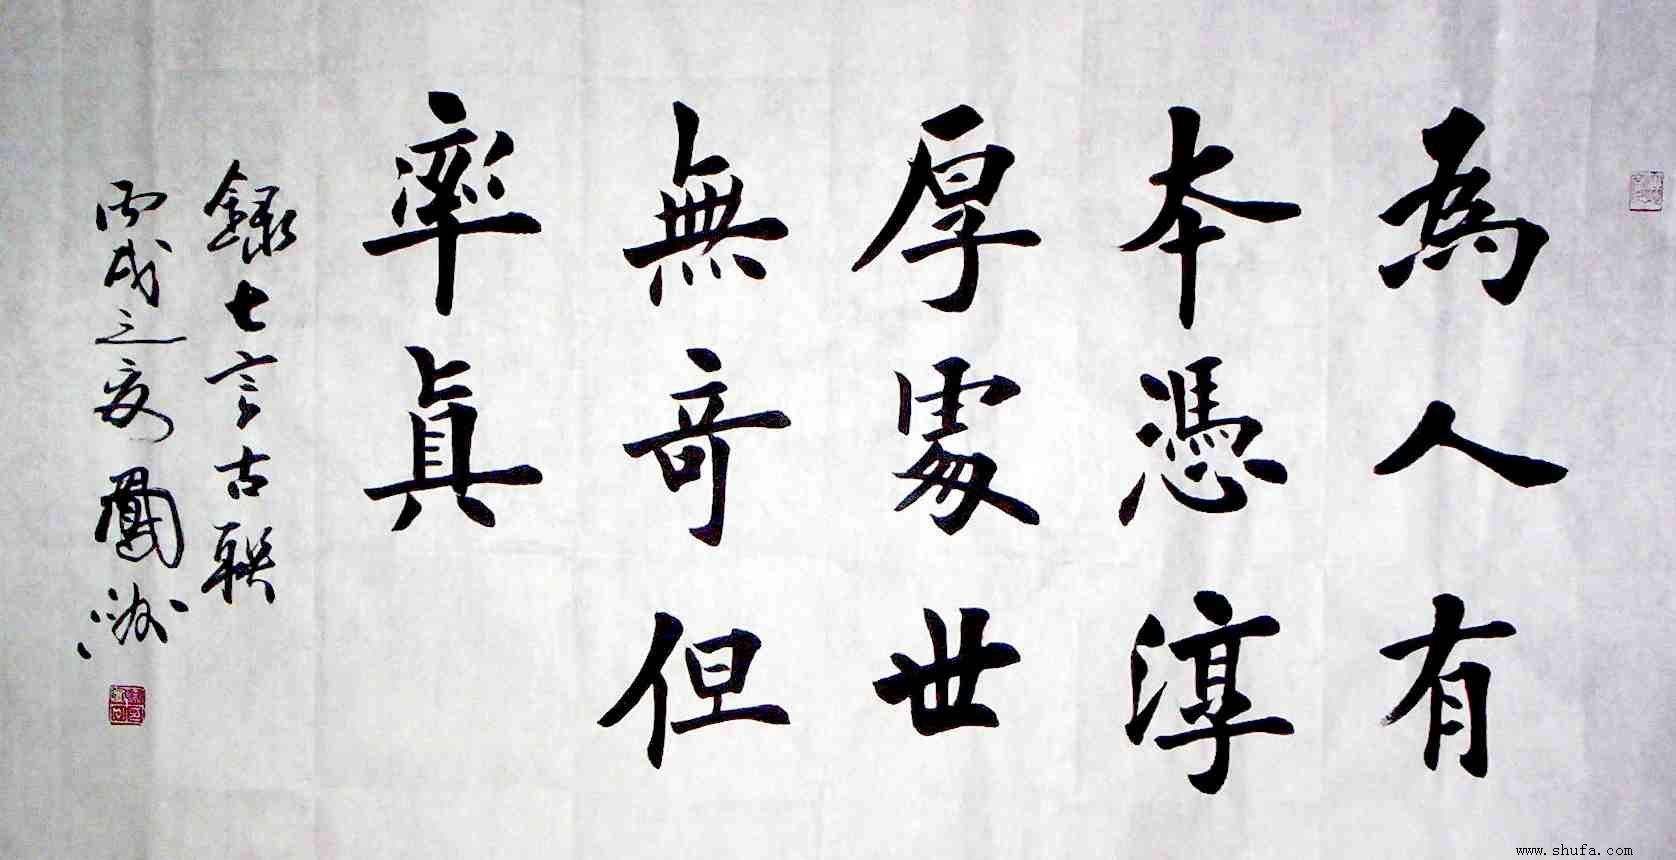 為人有
本憑淳
厚處世
無奇但
率真
錄七言古联
丙戌之夏
www.shufa.com